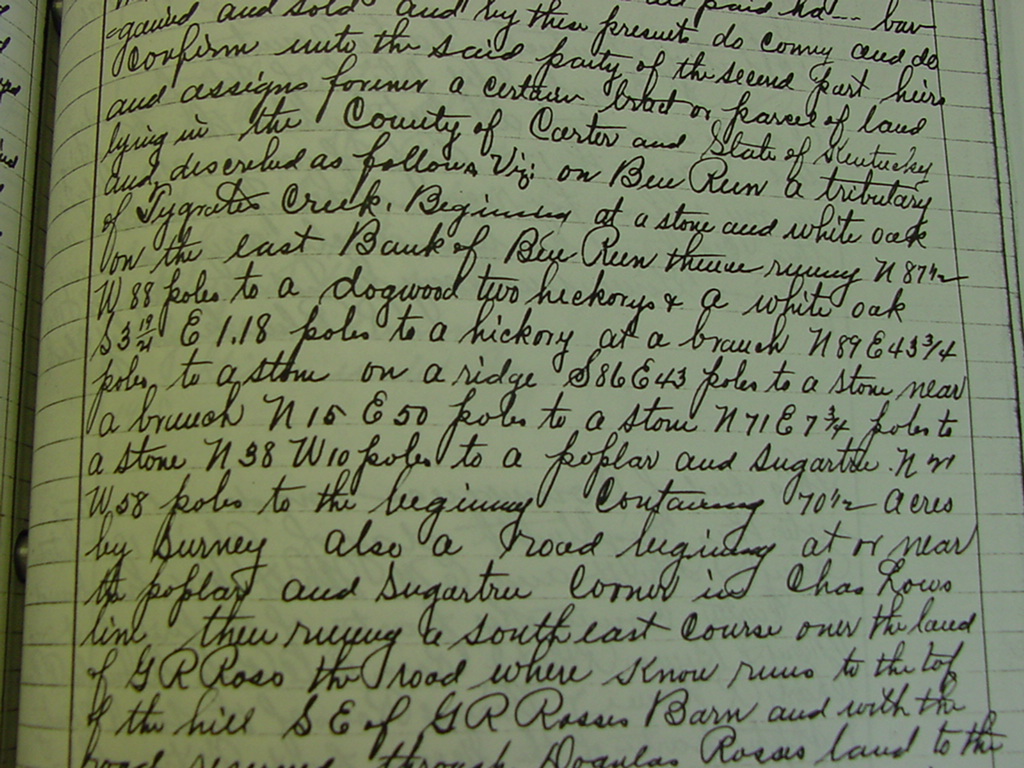 paid ha-- bar
-gained and sold and by these presents do convey and do
Confirm unto the said party of the second part heirs
and assigns forever a certain tract or parcel of land
lying in the County of Carter and State of Kentucky
and discribed as follows Viz: on Bee Run a tributary
of Tygrates Creek. Beginning at a stone and white oak
on the east Bank of Bee Run thence runing N 87 1/2
W 88 poles to a dogwood two hickorys & a white oak
S 3 E 1.18 poles to a hickory at a branch N 89 E 43 3/4
poles to a stone on a ridge S 86 E 43 poles to a stone near
a branch N 15 E 50 poles to a stone N 71 E 7 3/4 poles to
a stone N 38 W 10 poles to a poplar and sugartree N
W 58 poles to the beginning Containing 70 1/2 acres
by Survey also a road begining at or near
the poplar and Sugartree Corner in Chas Lows
line then runing a south east Course over the land
of G R Ross the road where know runs to the top
of the hill S E of G R Rosses Barn and with the
road through Douglas Rosses land to the